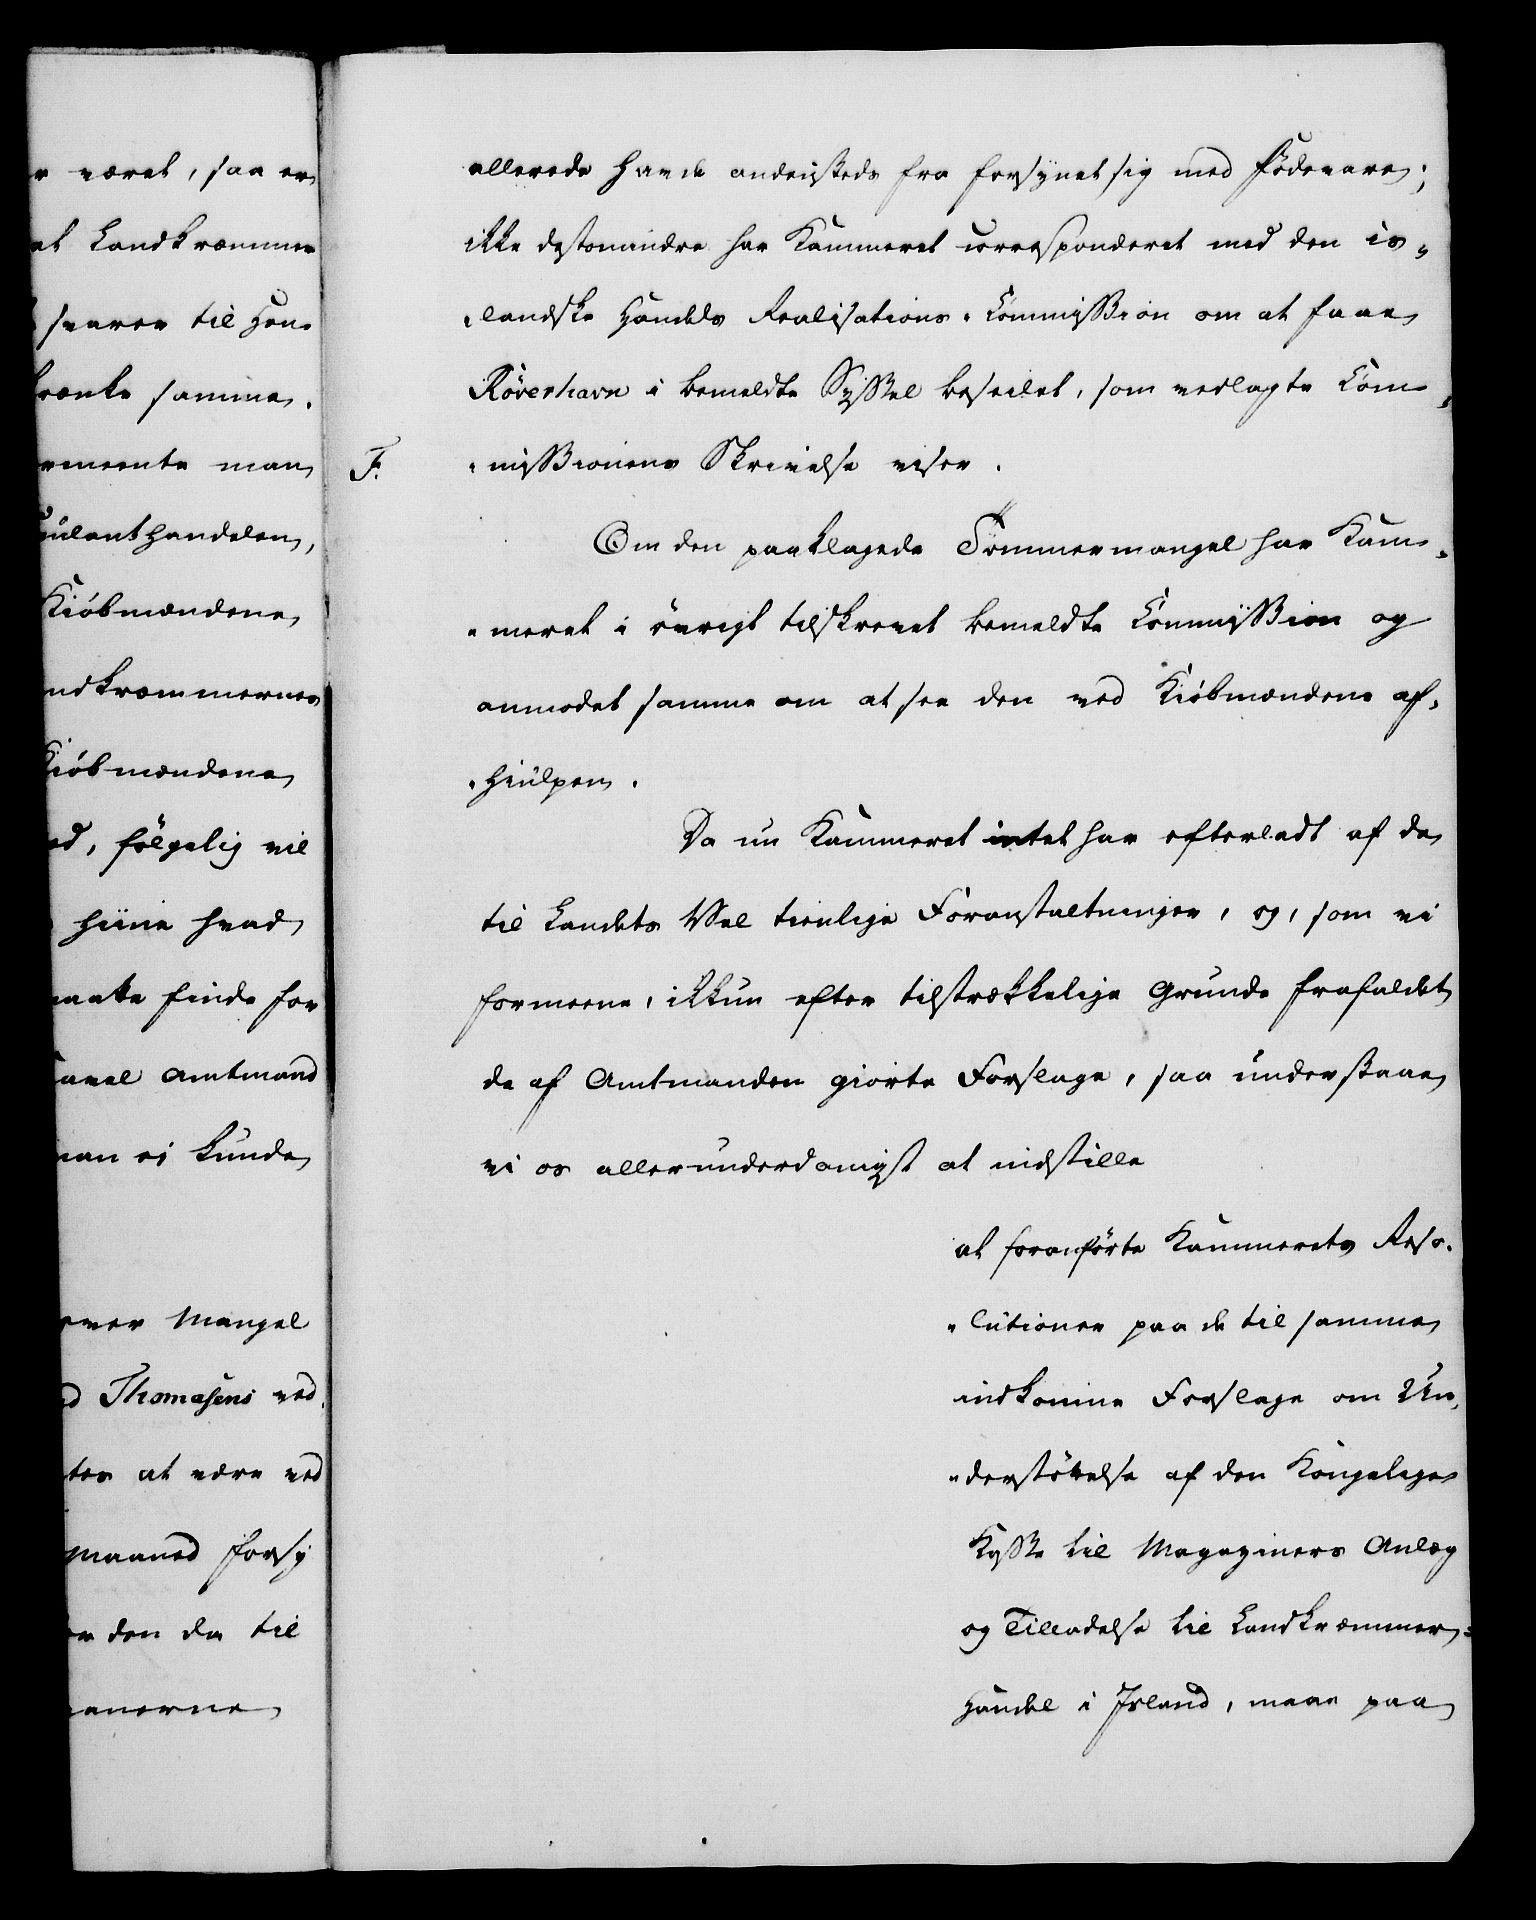 r været, saa er
at Landkræmmer
svarer til Han-
krænke samme.
rmeente man
ulanthandelen,
Kiöbmændene
ndkræmmernes
Kiöbmændene
ed, fölgelig vil
hiine hvad
maatte finde for
Amtmand
man ei kunde
over Mangel
d Thomasens ved
tes at være ved
Maaned forsy
den da til
anerne
allerede havde andensteds fra forsÿnet sig med Födevare;
ikke destomindre har Kammeret correspondert med den is-
-landske Handels Realisations-Commission om at faae
Röverhavn i bemeldte Syssel beseilet, som vedlagte Com-
F. -missionens Skrivelse viser.
Om den paaklagede Tömmermangel har Kam-
-meret i övrigt tilskrevet bemeldte Commission og
anmodet samme om at see den ved Kiöbmændene af-
-hiulpen.
Da nu Kammeret intet har efterladt af de
til Landets Vel tienlige Foranstaltninger, og, som vi
formeene, ikkun efter tilstrækkelige Grunde frafaldet
de af Amtmanden giorte Forslage, saa understaae
vi os allerunderdanigst at indstille
at foranförte Kammerets Reso-
-lutioner paa de til samme
indkomne Forslage om Un-
-derstöttelse af den Kongelige
Kasse til Magaziners Anlæg
og Tilladelse til Landkræmmer-
Handel i Island, maae paa